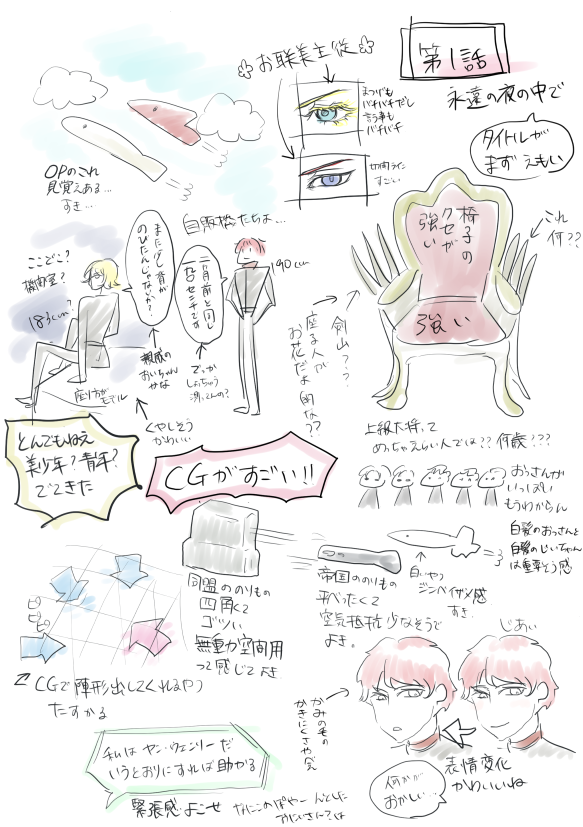 第1話
永遠の夜の中で
タイトルが
まずえもい
お耽美主従
まつげも
バチバチだし
言う事も
バチバチ
切開ライン
すごい
OPのこれ
見覚えある…
すき…
自販機たちよ…
ここどこ？
機関室？
183cm?
また少し背が
のびたんじゃないか？
二ヵ月前と同じ
190センチです
190cm
親戚の
おいちゃん
みな
でっか
しょっちゅう
測ってんの？
座り方が
モデル
くやしそう
かわいい
椅子の
クセが
強い
強い
これ
何??
剣山？？
座る人が
お花だよ的な??
とんでもねぇ
美少年？青年？
でてきた
CGがすごい!!
上級大将って
めっちゃえらい人では??何歳???
おっさんが
いっぱい
もうわからん
白髪のおっさんと
白髪のじいちゃん
は重要そう感
同盟ののりもの
四角くて
ゴツい
無重力空間用
って感じでよき
帝国ののりもの
平べったくて
空気抵抗少なそうで
よき。
白いやつ
ジンベイザメ感
すき
ピピピ
CGで陣形出してくれるやつ
たすかる
私はヤン・ウェンリーだ
いうとおりにすれば助かる
緊張感よこせ
かみのもの
かきにくさやべぇ
じあい
何かが
おかしい…
表情変化
かわいいね